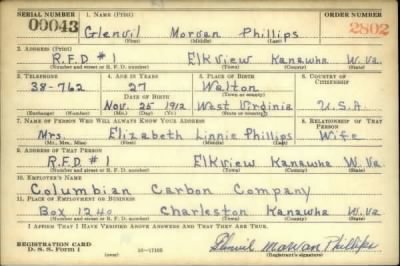 SERIAL NUMBER 1. NAME (Print) ORDER NUMBER
00043 Glenvil Morvan Phillips 2802
(First) (Middle) (Last)
2. ADDRESS (Print)
R.F.D #1 Elkview Kanawha W.Va
(Number and street or R. F. D. number) (Town) (County) (State)
3. TELEPHONE 4. AGE IN YEARS 5. PLACE OF BIRTH 6. COUNTRY OF CITIZENSHIP
38-762 27 Walton
DATE OF BIRTH (Town or county)
Nov. 25 1912 West Virginia U.S.A.
(Exchange) (Number) (Mo.) (Day) (Yr.) (State or country)
7. NAME OF PERSON WHO WILL ALWAYS KNOW YOUR ADDRESS 8. RELATIONSHIP OF THAT PERSON
Mrs. Elizabeth Linnie Phillips Wife
(Mr., Mrs., Miss) (First) (Middle) (Last)
9. ADDRESS OF THAT PERSON
R.F.D. #1 Elkview Kanawha W.Va
(Number and street or R. F. D. number) (Town) (County) (State)
10. EMPLOYER'S NAME
Columbian Carbon Company
11. PLACE OF EMPLOYMENT OR BUSINESS
Box 1240 Charleston Kanawha W.Va
(Number and street or R. F. D. number) (Town) (County) (State)
I AFFIRM THAT I HAVE VERIFIED ABOVE ANSWERS AND THAT THEY ARE TRUE.
REGISTRATION CARD
D. S. S. Form 1 (over) 16—17105 Glenvil Morvan Phillips
(Registrant's signature)